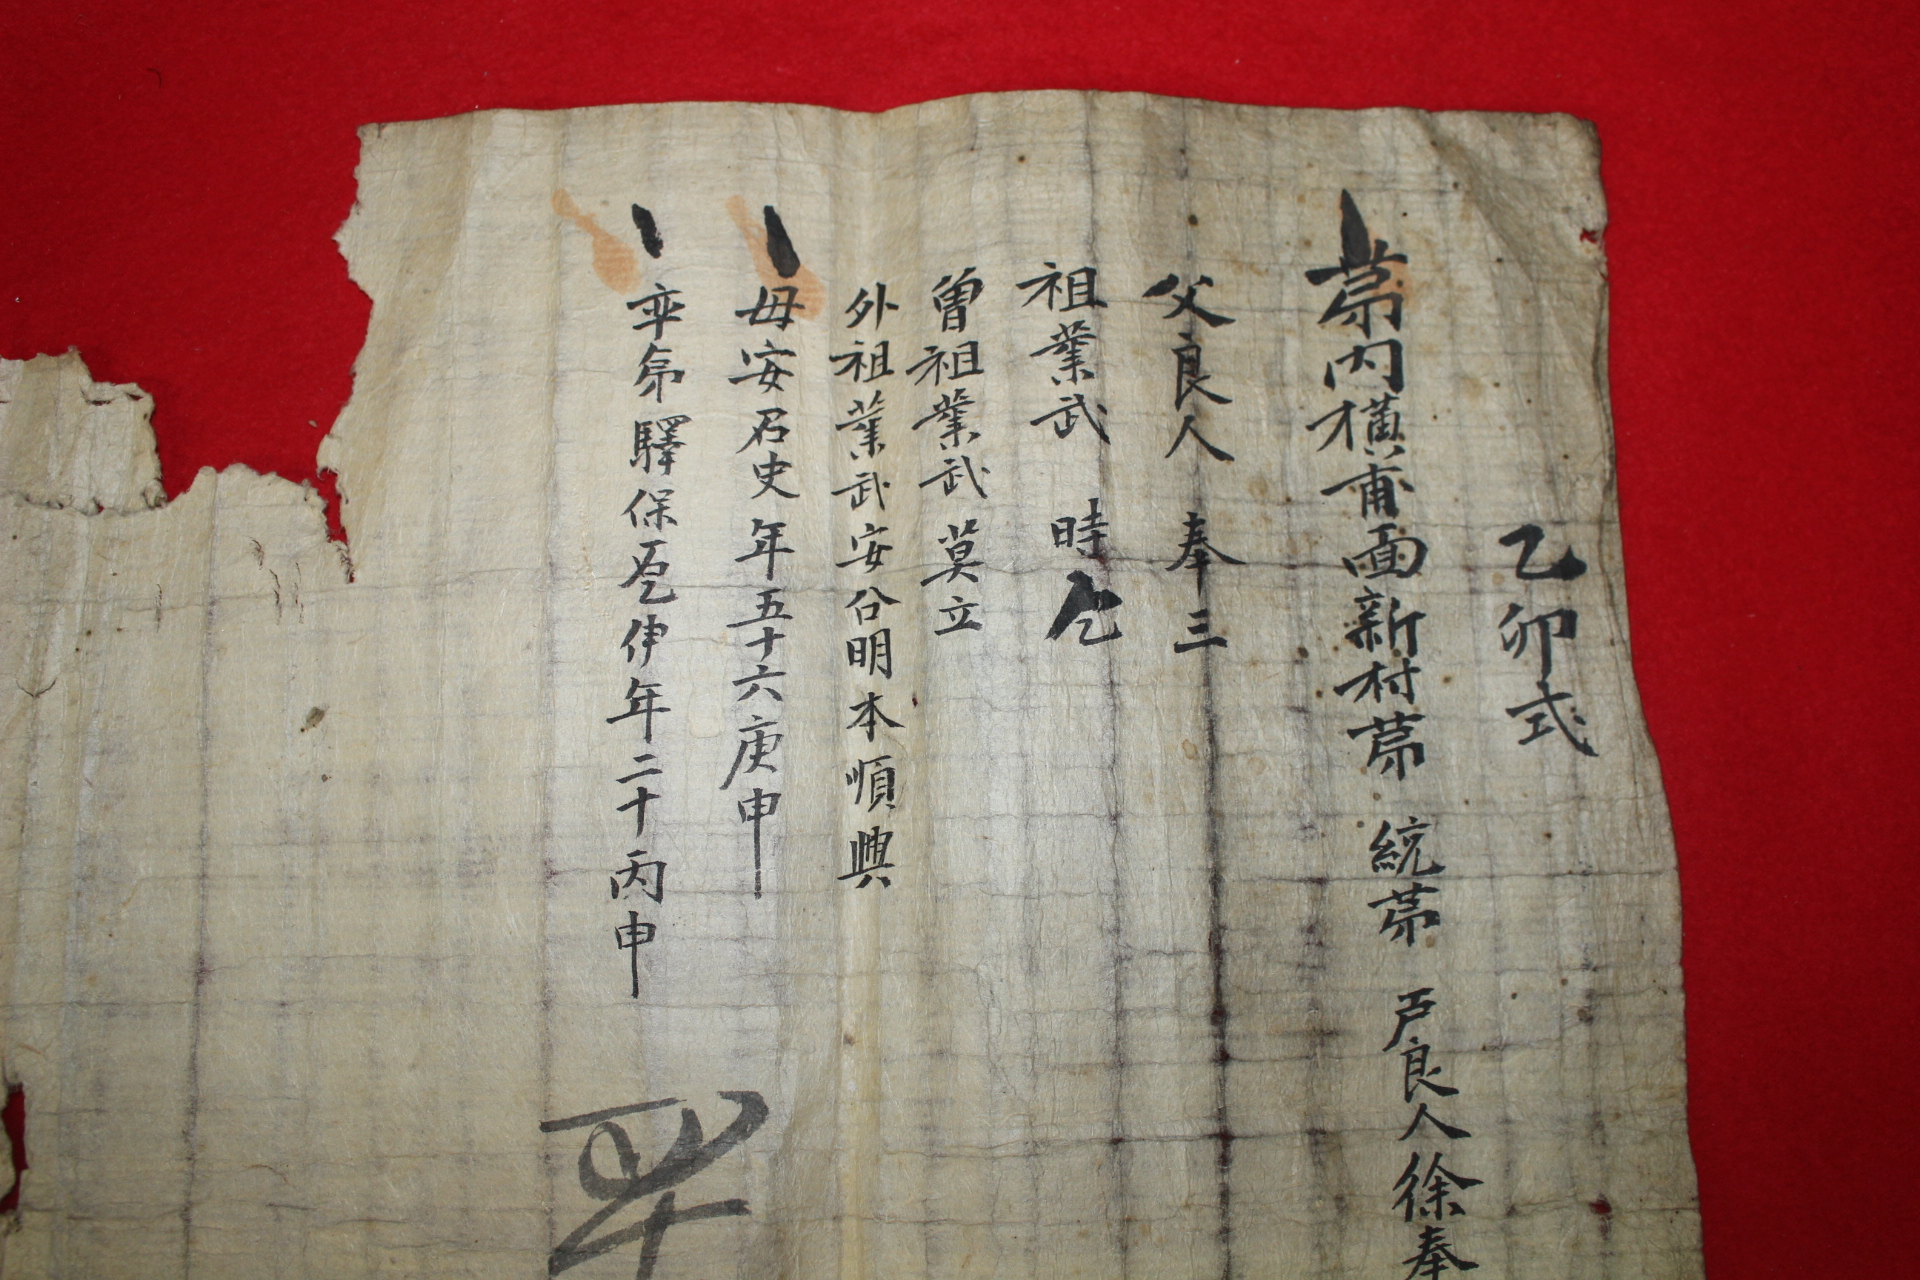 乙卯式
第內橫甫面新村第 統第 戶良人徐奉
父良人 奉三
祖業武 時
曾祖業武 莫立
外祖業武安公明本順興
母安召史年五十六庚申
率弟驛保 年二十丙申